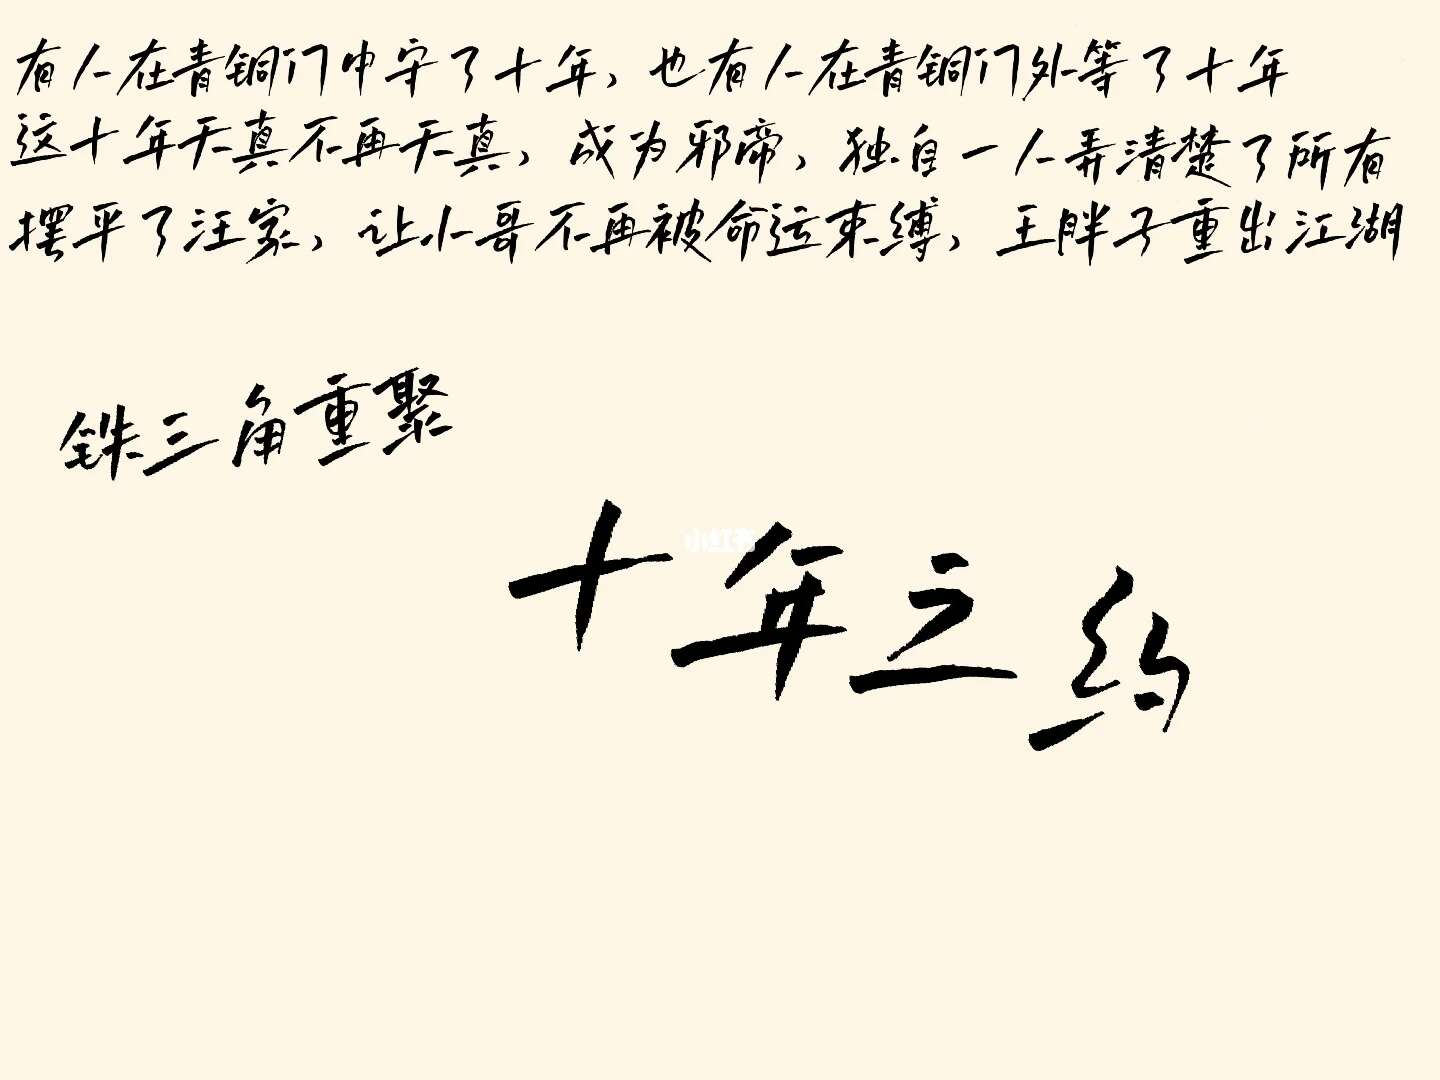 有人在青铜门中守了十年，也有人在青铜门外等了十年
这十年天真不再天真，成为邪帝，独自一人弄清楚了所有
摆平了汪家，让小哥不再被命运束缚，王胖子重出江湖
铁三角重聚
十年之约
小红书